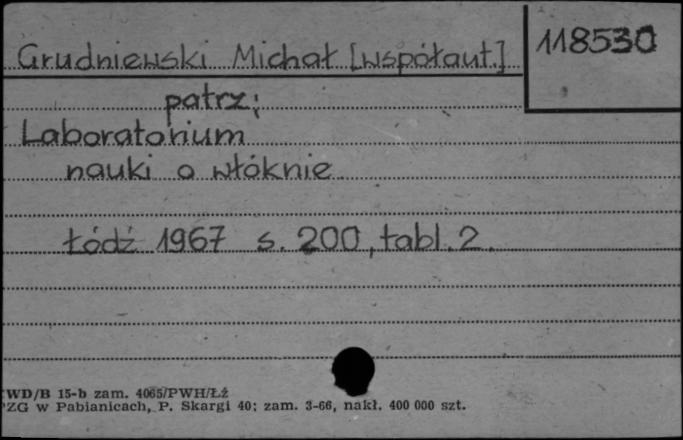 Grudniewski Michał [współaut.]
118530
patrz:
Laboratorium
nauki o włóknie
Łódź 1967 s. 200, tabl. 2.
WD/B 15-b zam. 4065/PWH/Łż
PZG w Pabianicach, P. Skargi 40; zam. 3-66, nakł. 400 000 szt.